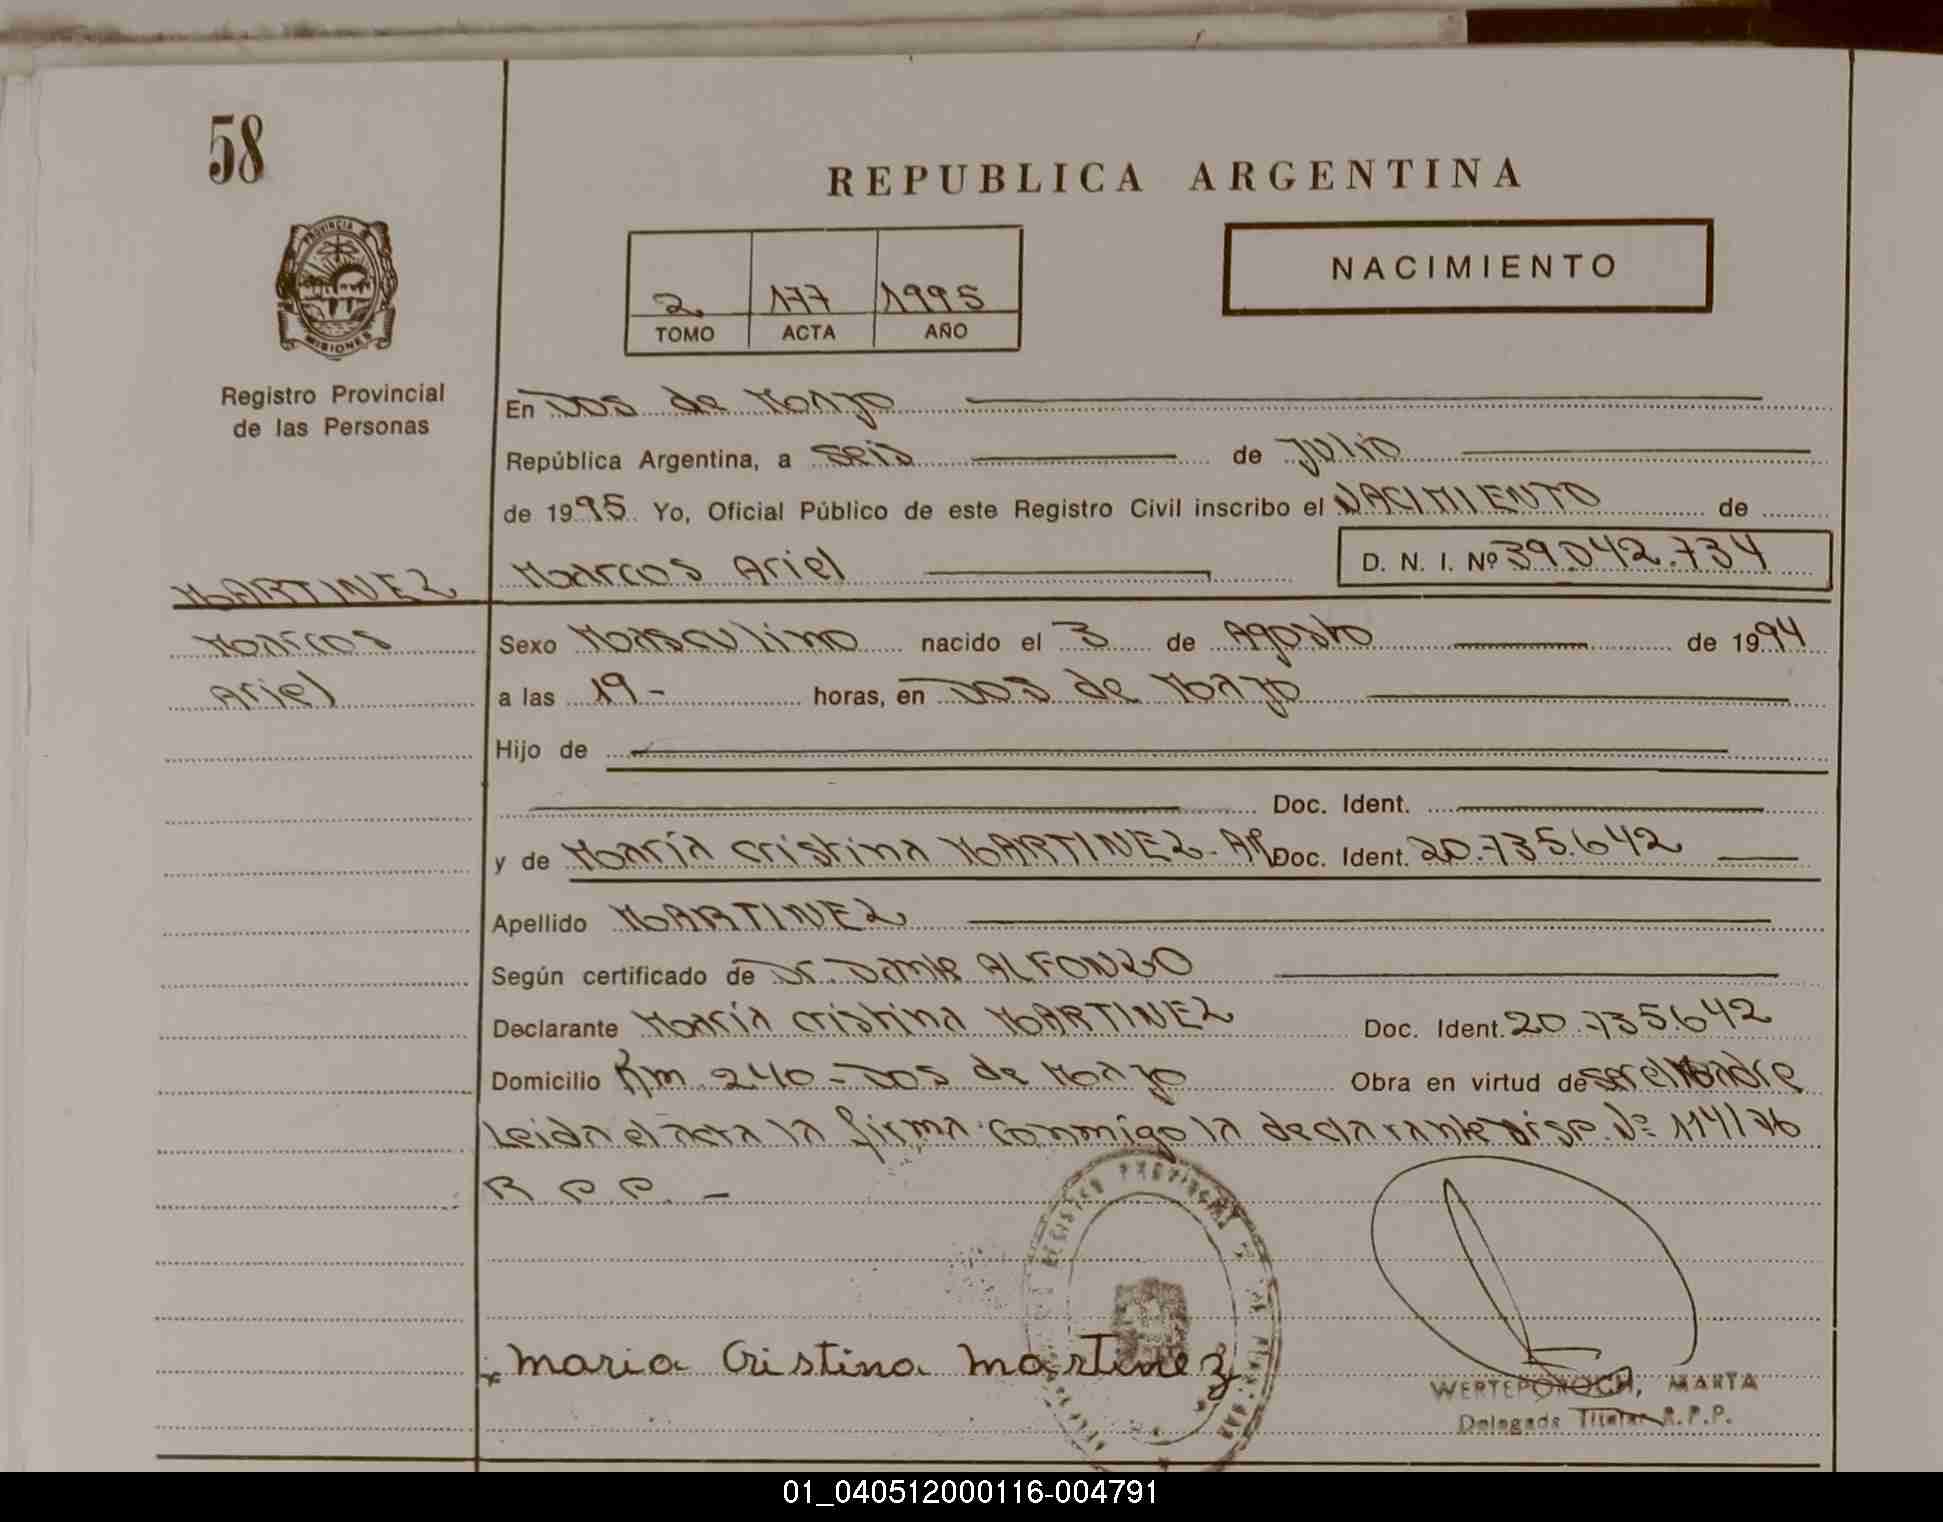 58
REPUBLICA ARGENTINA
PROVINCIA DE
MISIONES
NACIMIENTO
2. 177 1995
TOMO ACTA AÑO
Registro Provincial
de las Personas
En Dos de Mayo
República Argentina, a seis de Julio
de 1995. Yo, Oficial Público de este Registro Civil inscribo el NACIMIENTO de
MARTINEZ Marcos Ariel D. N. I. Nº 39.042.734
Marcos Sexo Masculino nacido el 3 de Agosto de 1994
Ariel a las 19- horas, en Dos de Mayo
Hijo de
Doc. Ident.
y de María Cristina MARTINEZ- AR Doc. Ident. 20.735.642
Apellido MARTINEZ
Según certificado de Dr. ALFONZO
Declarante María Cristina MARTINEZ Doc. Ident. 20.735.642
Domicilio Km 240 - Dos de Mayo Obra en virtud de ser el Madre
Leida el acta la firma conmigo la declarante Disp. Nº 114/76
R P P. -
REGISTRO PROVINCIAL
Maria Cristina Martinez
WERTEPOROCH, MARTA
Delegada Titular R.P.P.
01_040512000116-004791